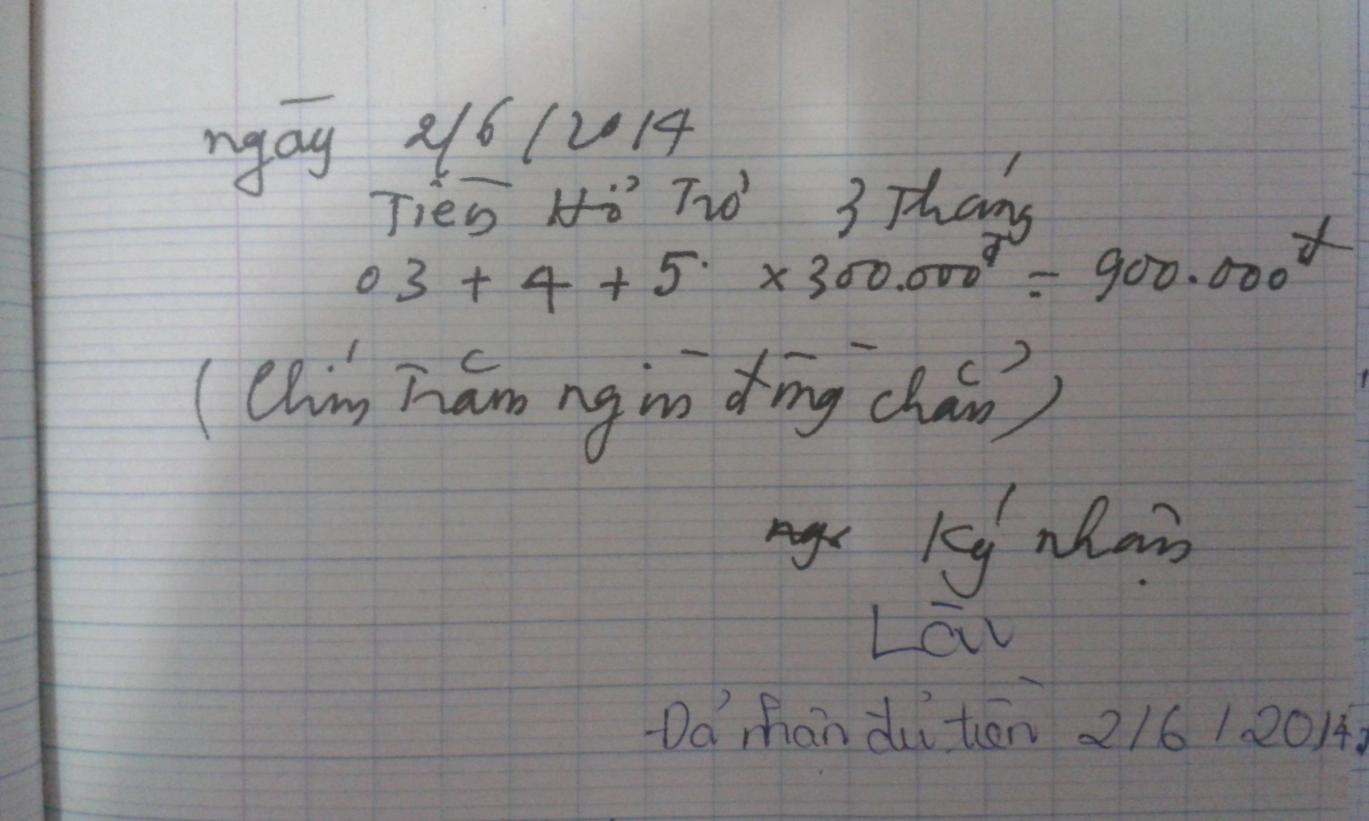 ngày 2/6/2014
Tiền Hổ Trở 3 Tháng
03 + 4 + 5 x 300.000đ = 900.000đ
(Chín Trăm ngìn đồng chẵn)
Ký nhận
Lầu
Đả nhận đủ tiền 2/6/2014